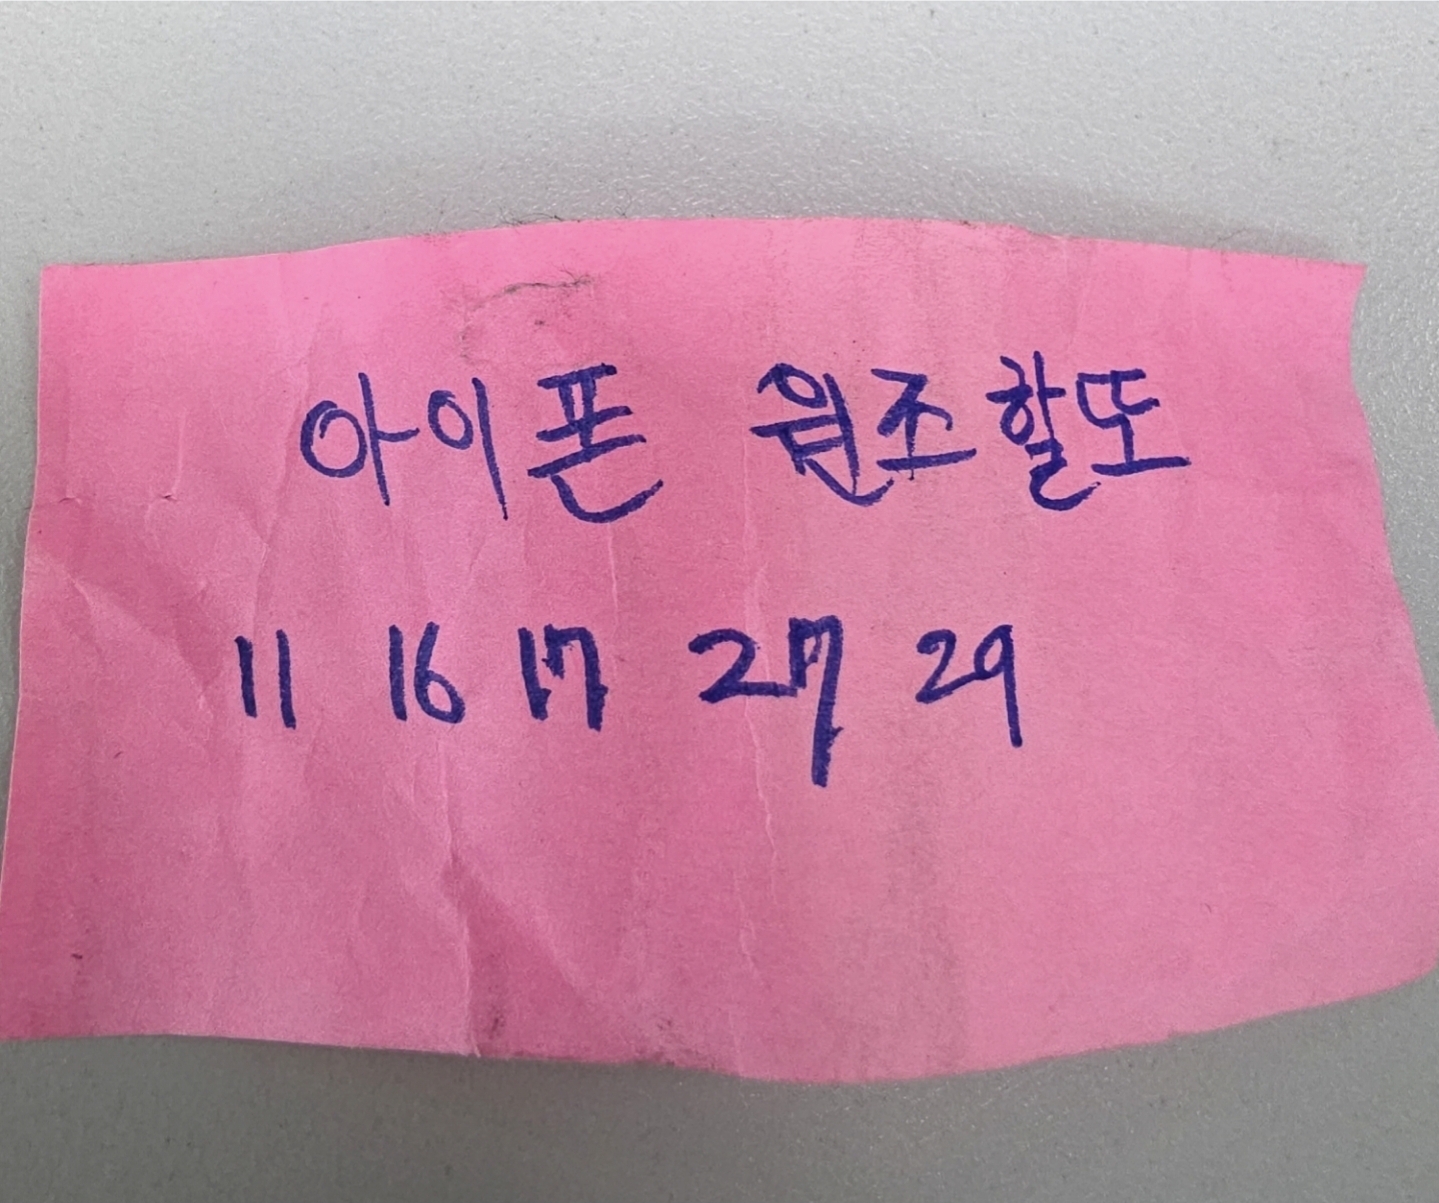 아이폰 원조할또
11 16 17 27 29